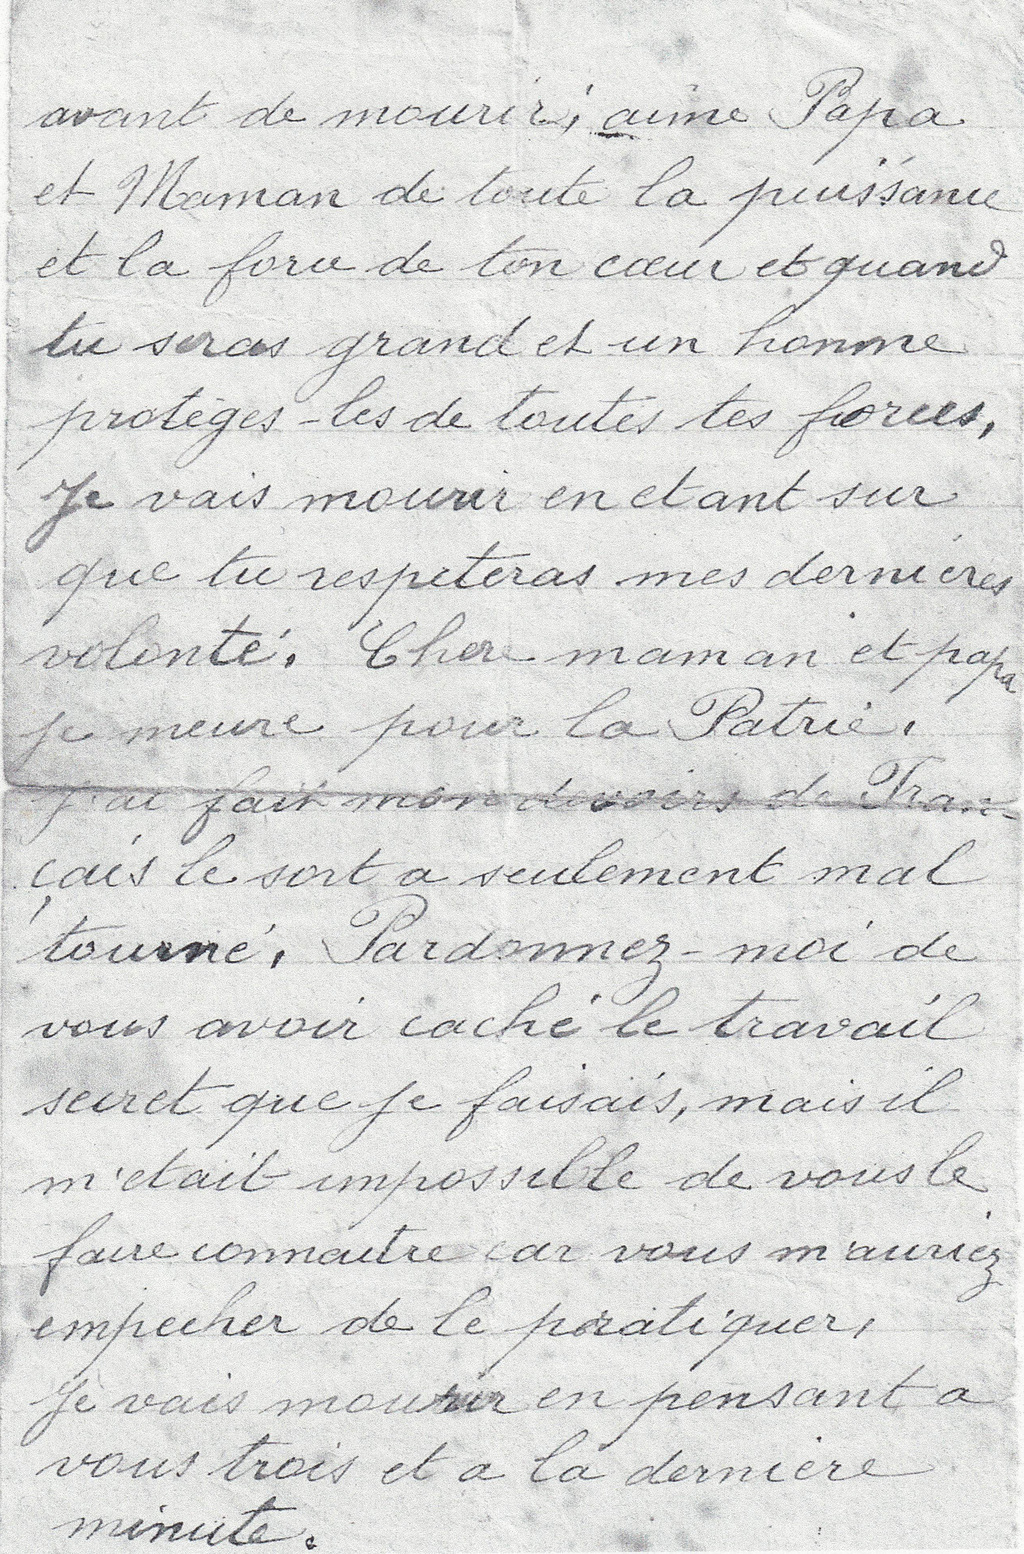 avant de mourir, aime Papa
et Maman de toute la puissance
et la force de ton cœur et quand
tu seras grand et un homme
protèges-les de toutes tes forces,
Je vais mourir en etant sur
que tu respeteras mes dernières
volonté. Chere maman et papa
je meure pour la Patrie.
j'ai fait mon devoirs de Fran-
çais le sort a seulement mal
tourné. Pardonnez-moi de
vous avoir caché le travail
secret que je faisais, mais il
m'etait impossible de vous le
faire connaitre car vous m'auriez
empecher de le pratiquer,
Je vais mourir en pensant a
vous trois et a la derniere
minute.